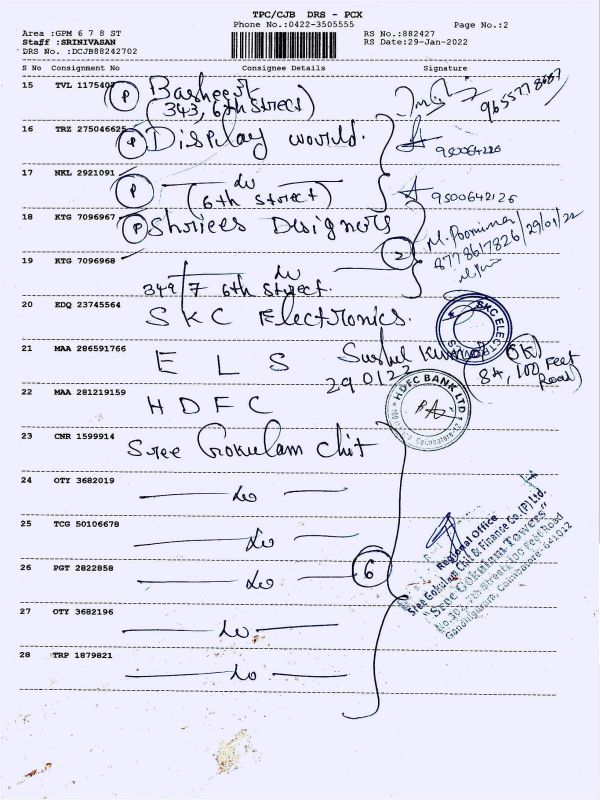 TPC/CJB DRS - PCX
Phone No.:0422-3505555
Page No.:2
Area :GPM 6 7 8 ST
Staff :SRINIVASAN
DRS No. :DCJB88242702
RS No.:882427
RS Date:29-Jan-2022
S No Consignment No Consignee Details Signature
15 TVL 1175407 P Basheer
(343, 6th Street)
9655778667
16 TRZ 275046625 P Display world.
950064226
17 NKL 2921091 P do
(6th Street)
9500642126
18 KTG 7096967 P Shriees Designers
M. Poornima
8778617826/29/01/22
2
19 KTG 7096968 do
349/7 6th Street.
20 EDQ 23745564 SKC Electronics.
SKC ELECTR
21 MAA 286591766 ELS
Sushil Kumar
29.01.22
84, 100 Feet
Road)
22 MAA 281219159 HDFC
HDFC BANK LTD
Coimbatore
23 CNR 1599914 Sree Gokulam Chit
24 OTY 3682019 do
25 TCG 50106678 do
26 PGT 2822858 do
6
Regional Office
Sree Gokulam Chit & Finance Co.(P) Ltd.
"Sree Gokulam Towers"
No.304, 7th Street, 100 Feet Road
Gandhipuram, Coimbatore-641012
27 OTY 3682196 do
28 TRP 1879821 do